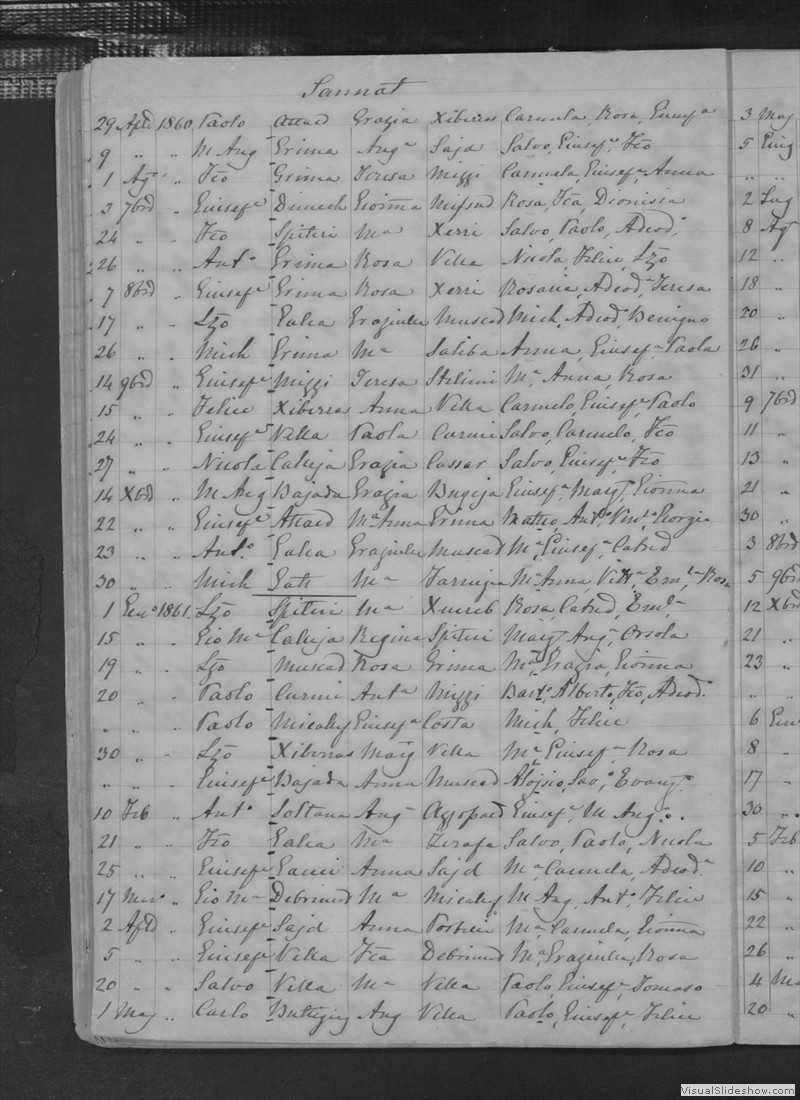 Sannat
29 Aple 1860 Paolo Attard Grazia Xiberras Carmela, Rosa, Giusepa
9 " " M Ang Grima Anga Sajd Salvo, Giusepe, Fco
1 Ago " Fco Grima Teresa Mizzi Carmela, Giusepe, Anna
3 7brd " Giusepe Dimech Gionna Mifsud Rosa, Fca, Dionisia
24 " " Fco Spiteri Ma Xerri Salvo, Paolo, Adeod.
26 " " Anto Grima Rosa Vella Nicola, Felice, Lzo
7 8brd " Giusepe Grima Rosa Xerri Rosaria, Adeod, Teresa
17 " " Lzo Galea Graziulla Muscad Mich, Adeod, Benigno
26 " " Mich Grima Ma Saliba Anna, Giusepe, Paola
14 9brd " Giusepe Mizzi Teresa Ma Anna, Rosa
15 " " Felice Xiberras Anna Vella Carmelo, Giusepe, Paolo
24 " " Giusepe Vella Paola Curmi Salvo, Carmelo, Fco
27 " " Nicola Calleja Grazia Cassar Salvo, Giusepe, Fco
14 Xbrd " M Ang Bajada Grazia Bugeja Giusepa, Marg, Gionna
22 " " Giusepe Attard Ma Anna Grima Matteo, Anto, Vinco, Giorgio
23 " " Anto Galea Graziulla Muscad Ma, Giusepe, Catrd
30 " " Mich Gatt Ma Farrugia Ma Anna, Emla, Rosa
1 Geno 1861. Lzo Spiteri Ma Xuereb Rosa, Catrd, Emla
15 " " Gio Ma Calleja Regina Spiteri Marg, Ang, Orsola
19 " - Lzo Muscad Rosa Grima Ma Grazia, Gionna
20 " - Paolo Curmi Anta Mizzi Bart, Alberto, Fco, Adeod.
" " - Paolo Micallef Giusepa Costa Mich, Felice
30 " - Lzo Xiberras Marg Vella Ma Giusepe, Rosa
" " " Giusepe Bajada Anna Muscad Alojsio, Savo, Evang.
10 Feb " Anto Soltana Ang Azzopard Giusepe, M Ang.
21 " " Fco Galea Ma Zerafa Salvo, Paolo, Nicola
25 " " Giusepe Anna Sajd Ma Carmela, Adeod.
17 Maro " Gio Ma Debrincd Ma Micallef M Ang, Anto, Felice
2 Aple " Giusepe Sajd Anna Portelli Ma Carmela, Gionna
5 " " Giusepe Vella Fca Debrincd Ma Graziulla, Rosa
20 - " Salvo Vella Ma Vella Paolo, Giusepe, Tomaso
1 Mag " Carlo Buttigieg Ang Vella Paolo, Giusepe, Felice
3 Mag
5 Giug
" "
2 Lug
8 Ago
12 "
18 "
20 "
26 "
31 "
9 7brd
11 "
13 "
21 "
30 "
3 8brd
5 9brd
12 Xbrd
21 "
23 "
" "
6 Gen
8 "
17 "
30 "
5 Feb
10 "
15 "
22 "
26 "
4 Ma
20 "
VisualSlideshow.com